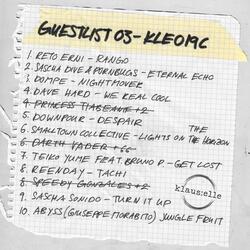 GUESTLIST 03 - KLE019C
1. RETO ERNI - RANGO
2. SASCHA DIVE & PORNBUGS - ETERNAL ECHO
3. DOMPE - NIGHTMOVER
4. DAVE HARD - WE REAL COOL
4. PRINCESS TIABEANIE +2
5. DOWNPOUR - DESPAIR
6. SMALLTOWN COLLECTIVE - LIGHTS ON THE HORIZON
6. DARTH VADER + 66
7. TEIKO YUME FEAT. BRUNO P - GET LOST
8. REENDAY - TACHI
8. SPEEDY GONZALES +2
9. SASCHA SONIDO - TURN IT UP
10. ABYSS (GIUSEPPE MORABITO) JUNGLE FRUIT
klaus:elle